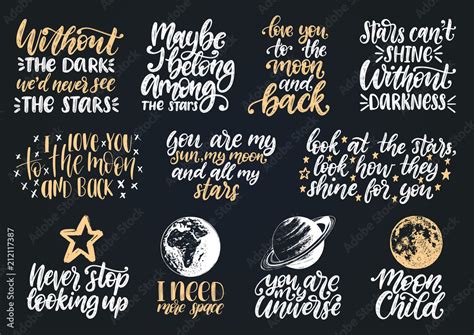 Without
THE DARK
we'd never see
THE STARS
Maybe
I belong
among
THE STARS
love you
to the
moon
and
back
Stars can't
SHINE
Without
DARKNESS
I LOVE YOU
TO THE MOON
AND BACK
you are my
sun, my moon
and all my
stars
look at the stars,
look how they
shine for you
Never stop
looking up
I NEED
more space
you are
my
universe
Moon
Child
Adobe Stock | #212117387